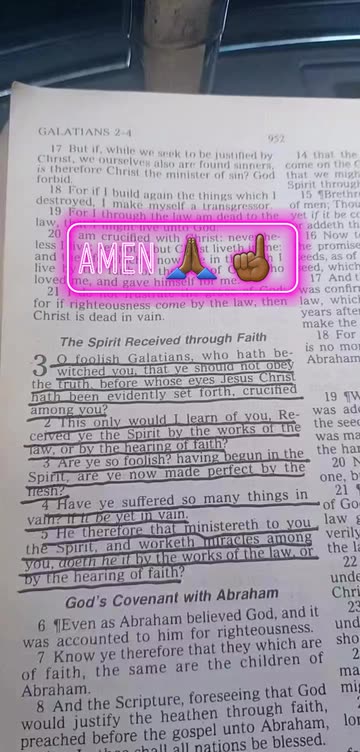 GALATIANS 2-4
952
17 But if, while we seek to be justified by
Christ, we ourselves also are found sinners,
is therefore Christ the minister of sin? God
forbid.
18 For if I build again the things which I
destroyed, I make myself a transgressor.
19 For I through the law am dead to the
law, that I might live unto God.
20 I am crucified with Christ: neverthe-
less I live; but Christ liveth in me:
AMEN 🙏🏾 ☝🏾
loved me, and gave himself for me.
21
for if righteousness come by the law, then
Christ is dead in vain.
The Spirit Received through Faith
3 O foolish Galatians, who hath be-
witched you, that ye should not obey
the truth, before whose eyes Jesus Christ
hath been evidently set forth, crucified
among you?
2 This only would I learn of you, Re-
ceived ye the Spirit by the works of the
law, or by the hearing of faith?
3 Are ye so foolish? having begun in the
Spirit, are ye now made perfect by the
flesh?
4 Have ye suffered so many things in
vain? if it be yet in vain.
5 He therefore that ministereth to you
the Spirit, and worketh miracles among
you, doeth he it by the works of the law, or
by the hearing of faith?
God's Covenant with Abraham
6 ¶Even as Abraham believed God, and it
was accounted to him for righteousness.
7 Know ye therefore that they which are
of faith, the same are the children of
Abraham.
8 And the Scripture, foreseeing that God
would justify the heathen through faith,
preached before the gospel unto Abraham,
shall all nations be blessed.
14 that the
come on the
that we migh
Spirit through
15 ¶Brethr
of men; Thou
yet if it be co
addeth th
16 Now to
the promise
eeds, as of
which
17 And t
was confir
which
years after
make the
18 For
is no mor
Abraham
19 ¶W
was ad
the seed
was ma
the han
20 N
one, b
21
of Go
law
verily
the l
22
und
Chri
23
und